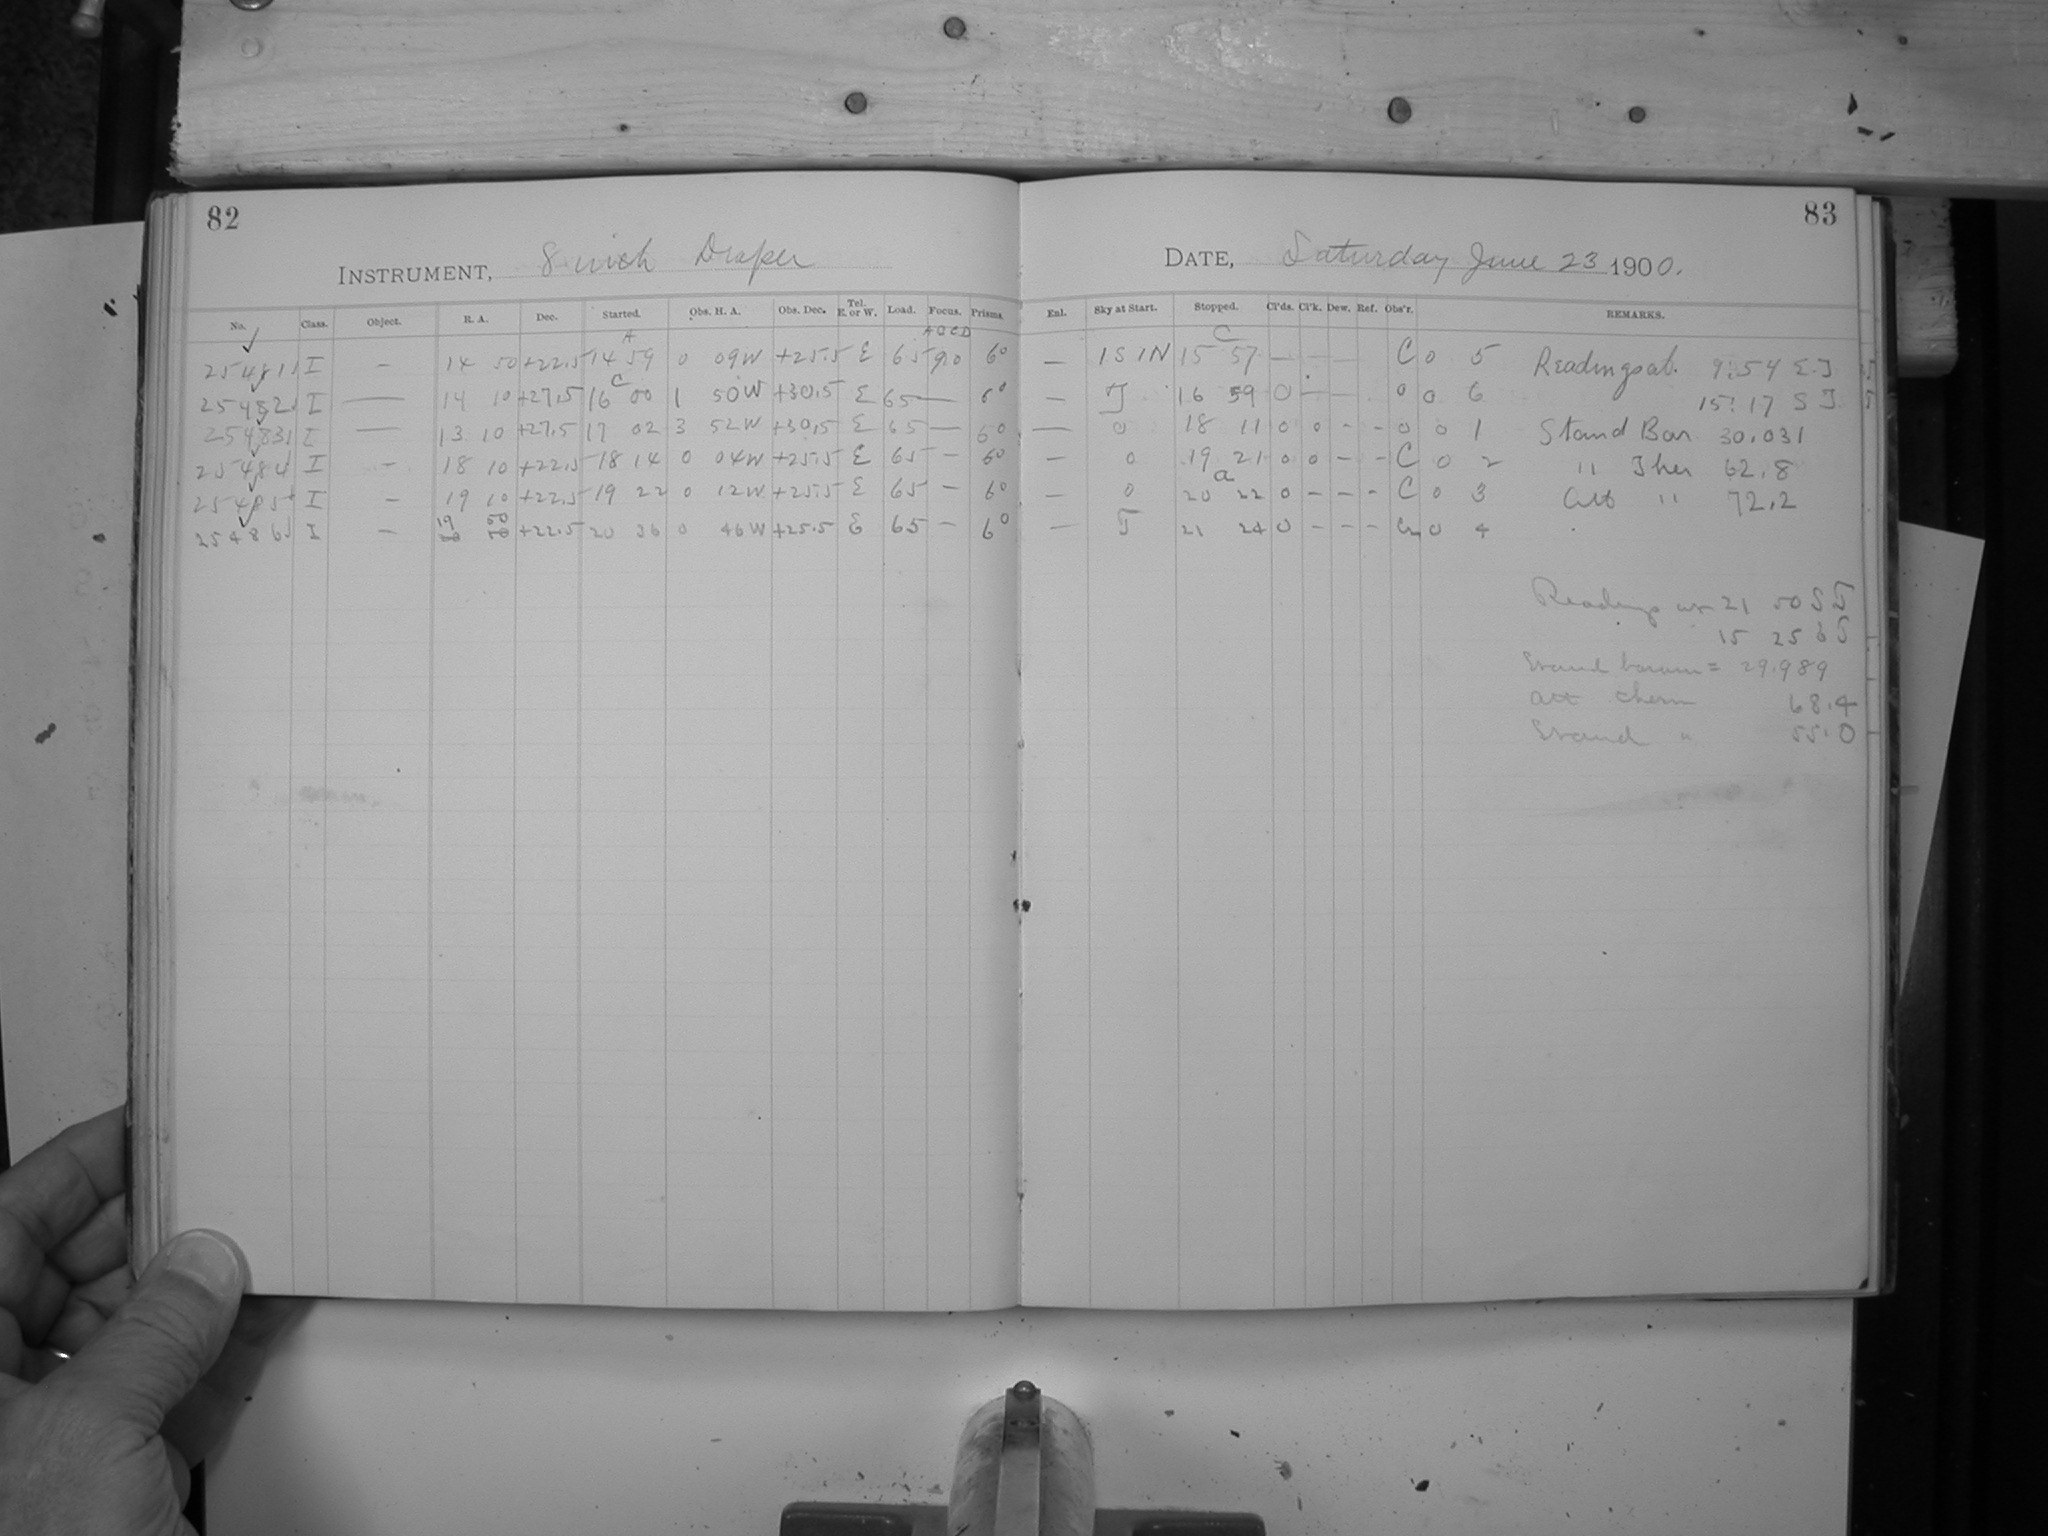 82
INSTRUMENT, 8 inch Draper
No. Class. Object. R. A. Dec. Started. Obs. H. A. Obs. Dec. Tel. E. or W. Load. Focus. Prisms.
A A O C D
25481 I — 14 50 +22.5 14 59 0 09 W +25.5 E 65 9.0 6°
C
25482 I — 14 10 +27.5 16 00 1 50 W +30.5 E 65 — 6°
25483 I — 13 10 +27.5 17 02 3 52 W +30.5 E 65 — 6°
25484 I — 18 10 +22.5 18 14 0 04 W +25.5 E 65 — 6°
25485 I — 19 10 +22.5 19 22 0 12 W +25.5 E 65 — 6°
19 50
25486 I — +22.5 20 36 0 46 W +25.5 E 65 — 6°
83
DATE, Saturday June 23 1900.
Enl. Sky at Start. Stopped. Cl'ds. Cl'k. Dew. Ref. Obs'r. REMARKS.
C
— 1S 1N 15 57 — — — C 0 5 Readings at 9:54 E.T
— T 16 59 0 — — 0 0 6 15:17 S T
— 0 18 11 0 0 - - 0 0 1 Stand Bar 30.031
— 0 19 21 0 0 - - C 0 2 " Ther 62.8
a
— 0 20 22 0 - - - C 0 3 Att " 72.2
— T 21 24 0 - - - 0 4
Readings 21 50 S T
15 25 S
Stand barom = 29.989
att therm 68.4
Stand " 55.0